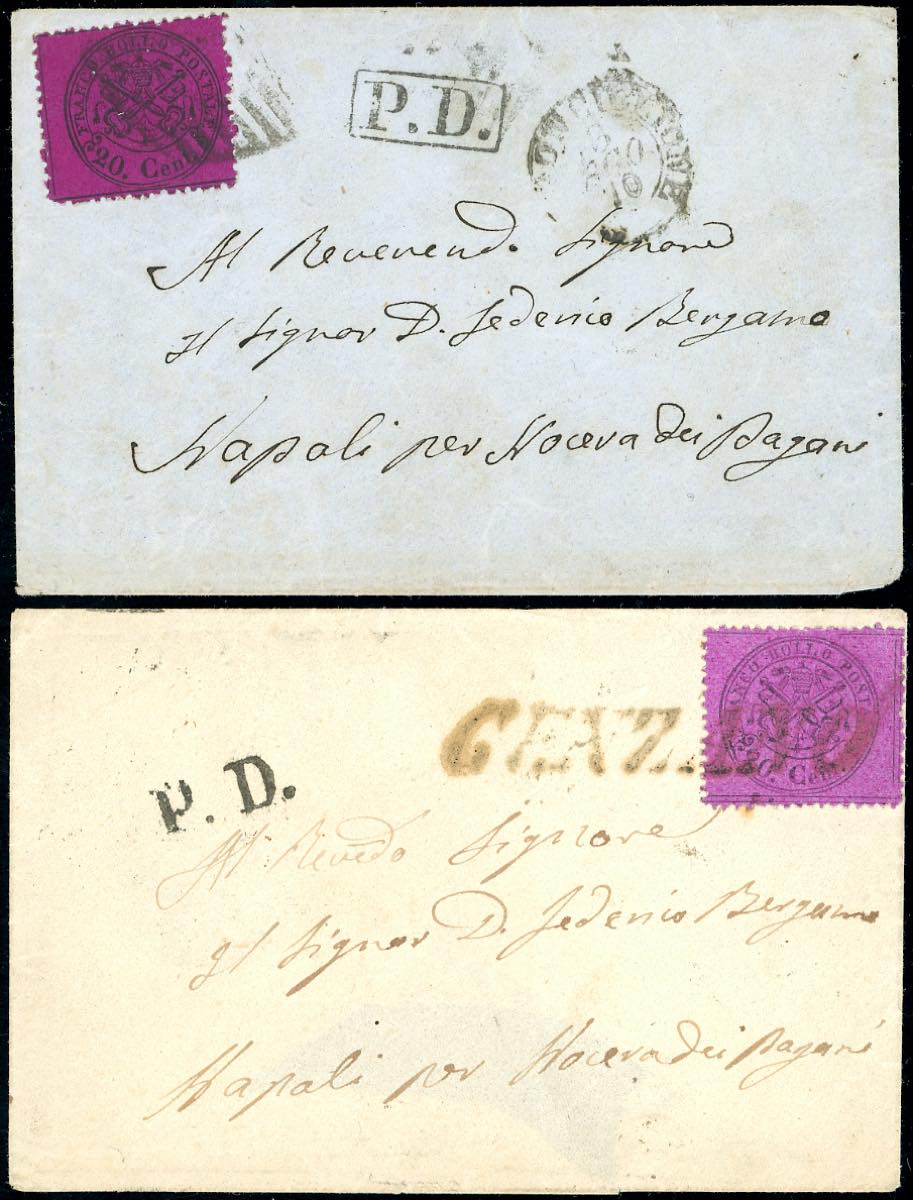 FRANCO BOLLO POSTALE
20. Cent.
P.D.
AGO
Al Reverendo Signore
Il Signor D. Federico Bergamo
Napoli per Nocera dei Pagani
FRANCO BOLLO POST
20. Cent.
GENZA
P.D.
Al Revedo Signore
Il Signor D. Federico Bergamo
Napoli per Nocera dei Pagani